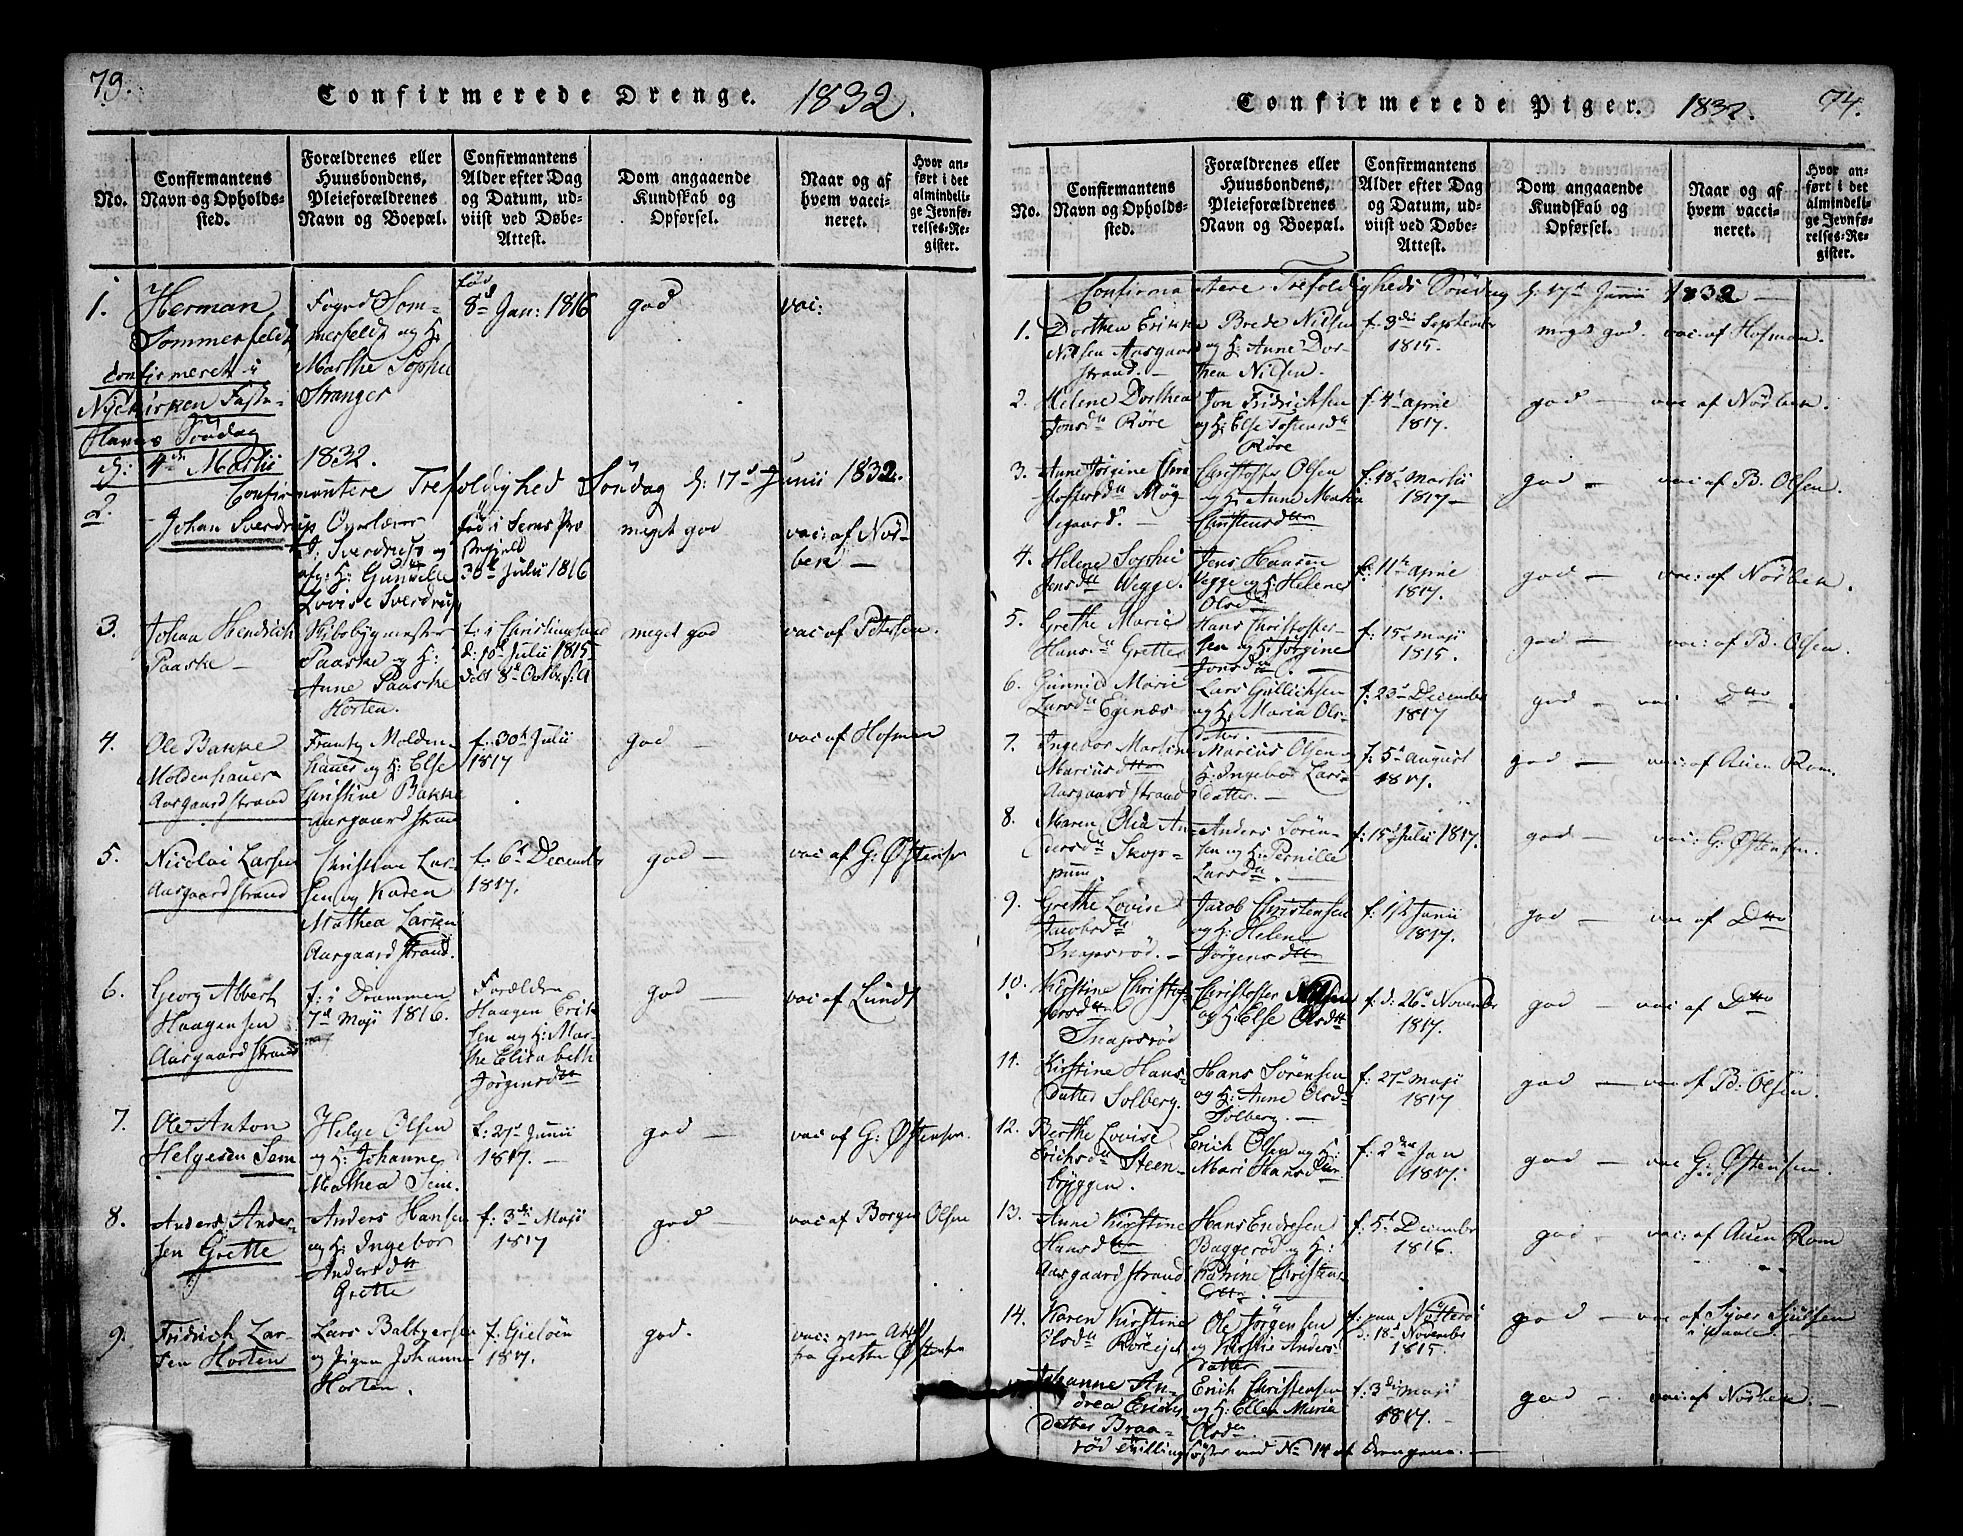 79.
Confirmerede Drenge. 1832.
No.
Confirmantens
Navn og Opholds-
sted.
Forældrenes eller
Huusbondens,
Pleieforældrenes
Navn og Boepæl.
Confirmantens
Alder efter Dag
og Datum, ud-
viist ved Døbe-
Attest.
Dom angaaende
Kundskab og
Opførsel.
Naar og af
hvem vacci-
neret.
Hvor an-
ført i det
almindeli-
ge Jevnfø-
relses-Re-
gister.
1.
Herman
Sommerfeldt
confirmeret i
Nyekirken Faste-
Søndag
d: 4de Martii 1832.
Foged Som-
merfeldt og H:
Marthe Sophie
Stranger
fød
8d Jan: 1816
god
vac:
Confirmantere Trefoldighed Søndag d: 17d Junii 1832.
2.
Johan Sverdrup
Overlærer
J: Sverdrup og
afg: H: Gunnille
Lovise Sverdrup
fød i Sems Præ
stegield
30d Julii 1816
meget god
vac: af Nör-
bek —
3.
Johan Hendrich
Paaske —
Skibsbygmester
Paaske og H:
Anne Paaske
Horten.
f: i Christiansand
d: 10d Julii 1815
meget god
vac af Petersen.
4.
Ole Bakke
Moldenhauer
Aasgaardstrand
Frantz Molden-
hauer og H: Else
Christine Bakke
Aasgaardstrand
f: 30d Julii
1817
god —
vac af Hofman
5.
Nicolai Larsen
Aasgaardstrand
Christian Lar-
sen og Karen
Mathea Larsen
Aasgaardstrand.
f: 6d December
1817.
god —
vac af G: Østensen
6.
Georg Albert
Haagensen
Aasgaardstrand
f: i Drammen
7d Maji 1816.
Forældre
Haagen Erik
sen og H: Mar-
the Elisabeth
Jørgensdtr
god —
vac af Lundt
7.
Ole Anton
Helgesen Sem
Helge Olsen
og H: Johanne
Mathea Sem.
f: 21d Junii
1817. —
god —
vac af G: Østensen.
8.
Anders Ander-
sen Grette
Anders Hansen
og H: Ingebor
Andersdtr
Grette
f: 3di Maji
1817
god —
vac af Borger Olsen
9.
Fridrich Lar-
sen Horten
Lars Baltzersen
og Pigen Johanne
Horten.
f: Gieløen
1817.
god.
vac:
fra Grette Østensen
74.
Confirmerede Piger. 1832.
No.
Confirmantens
Navn og Opholds-
sted.
Forældrenes eller
Huusbondens,
Pleieforældrenes
Navn og Boepæl.
Confirmantens
Alder efter Dag
og Datum, ud-
viist ved Døbe-
Attest.
Dom angaaende
Kundskab og
Opførsel.
Naar og af
hvem vacci-
neret.
Hvor an-
ført i det
almindeli-
ge Jevnfø-
relses-Re-
gister.
Confirmantere Trefoldigheds Søndag d: 17d Junii 1832 —
1.
Dorthea Erikke
Nilsen Aasgaard
strand. —
Brede Nilsen
og H: Anne Dor-
thea Nilsen.
f: 3di September
1815.
meget god.
vac af Hofman.
2.
Helene Dorthea
Jonsdtr Røre
Jon Fridrichsen
og H: Else Tostensdtr
Røre
f: 4d april
1817.
god —
vac af Nörbek.
3.
Anne Jörgine Chri
stofersdtr Møg
legaard. —
Christopher Olsen
og H: Anne Maria
Christensdtr
f: 18d Martii
1817 —
god —
vac: af B: Olsen.
4.
Helene Sophie
Jensdtr Wegge.
Jens Hansen
Vegge og H: Helene
Olsdtr
f: 11te april
1817.
god —
vac: af Nörbek.
5.
Grethe Marie
Hansdtr Grette
Hans Christopher-
sen og H: Jörgine
Jonsdtr.
f: 15d Maji
1815.
god —
vac: af B: Olsen.
6.
Gunnild Marie
Larsdtr Egenæs
Lars Gullichsen
og H: Maria Ols-
datter.
f: 23d December
1817
god —
vac: Dtto.
7.
Ingebor Martine
Mariusdtr
Aasgaardstrand
Marius Olsen og
H: Ingebor Lars-
datter. —
f: 5d august
1817.
god —
vac: af Auen Rom.
8.
Maren Olea An-
dersdtr Skop-
pum. —
Anders Sören-
sen og H: Pernille
Larsdtr. —
f: 15d Julii 1817.
god —
vac: G: Østensen.
9.
Grethe Lovise
Jacobsdtr
Snapsrød. —
Jacob Christensen
og H: Helene
Jörgensdtr
f: 1st Junii
1817.
god —
vac af Dtto
10.
Kirstine Christof-
fersdtr
Snapsröd
Christoffer Nilsen
og H: Else Olsdtr
f: d: 26d November
1817.
god —
vac af Dtto
11.
Kirstine Hans-
datter Solberg.
Hans Sörensen
og H: Anne Olsdtr
Solberg. —
f: 27d Maji
1817
god —
vac af B: Olsen.
12.
Berthe Lovise
Erichsdtr Steen-
bryggen.
Erich Olsen og H:
Mari Hansdtr
f: 2den Jan
1817.
god —
vac G: Østensen.
13.
Anne Kirstine
Hansdtr
Aasgaardstrand
Hans Endresen
Baggerød og H:
Katrine Christens
f: 5t December
1816.
god —
vac: af Auen Rom
14.
Karen Kirstine
Olsdtr Röreiet
Ole Jørgensen
og Kirstie Anders-
datter
f: paa Nötterö
d: 18d November
1815.
god —
vac af Syver Sjulsen
Johanne An-
drea Erichs
datter Braa-
röd
Erich Christensen
og H: Ellen Maria
Olsdtr
f: 3di Maji
1817. —
god —
vac: af Nörbek. —
Tvillingsöster med No 14 af Drengene. —